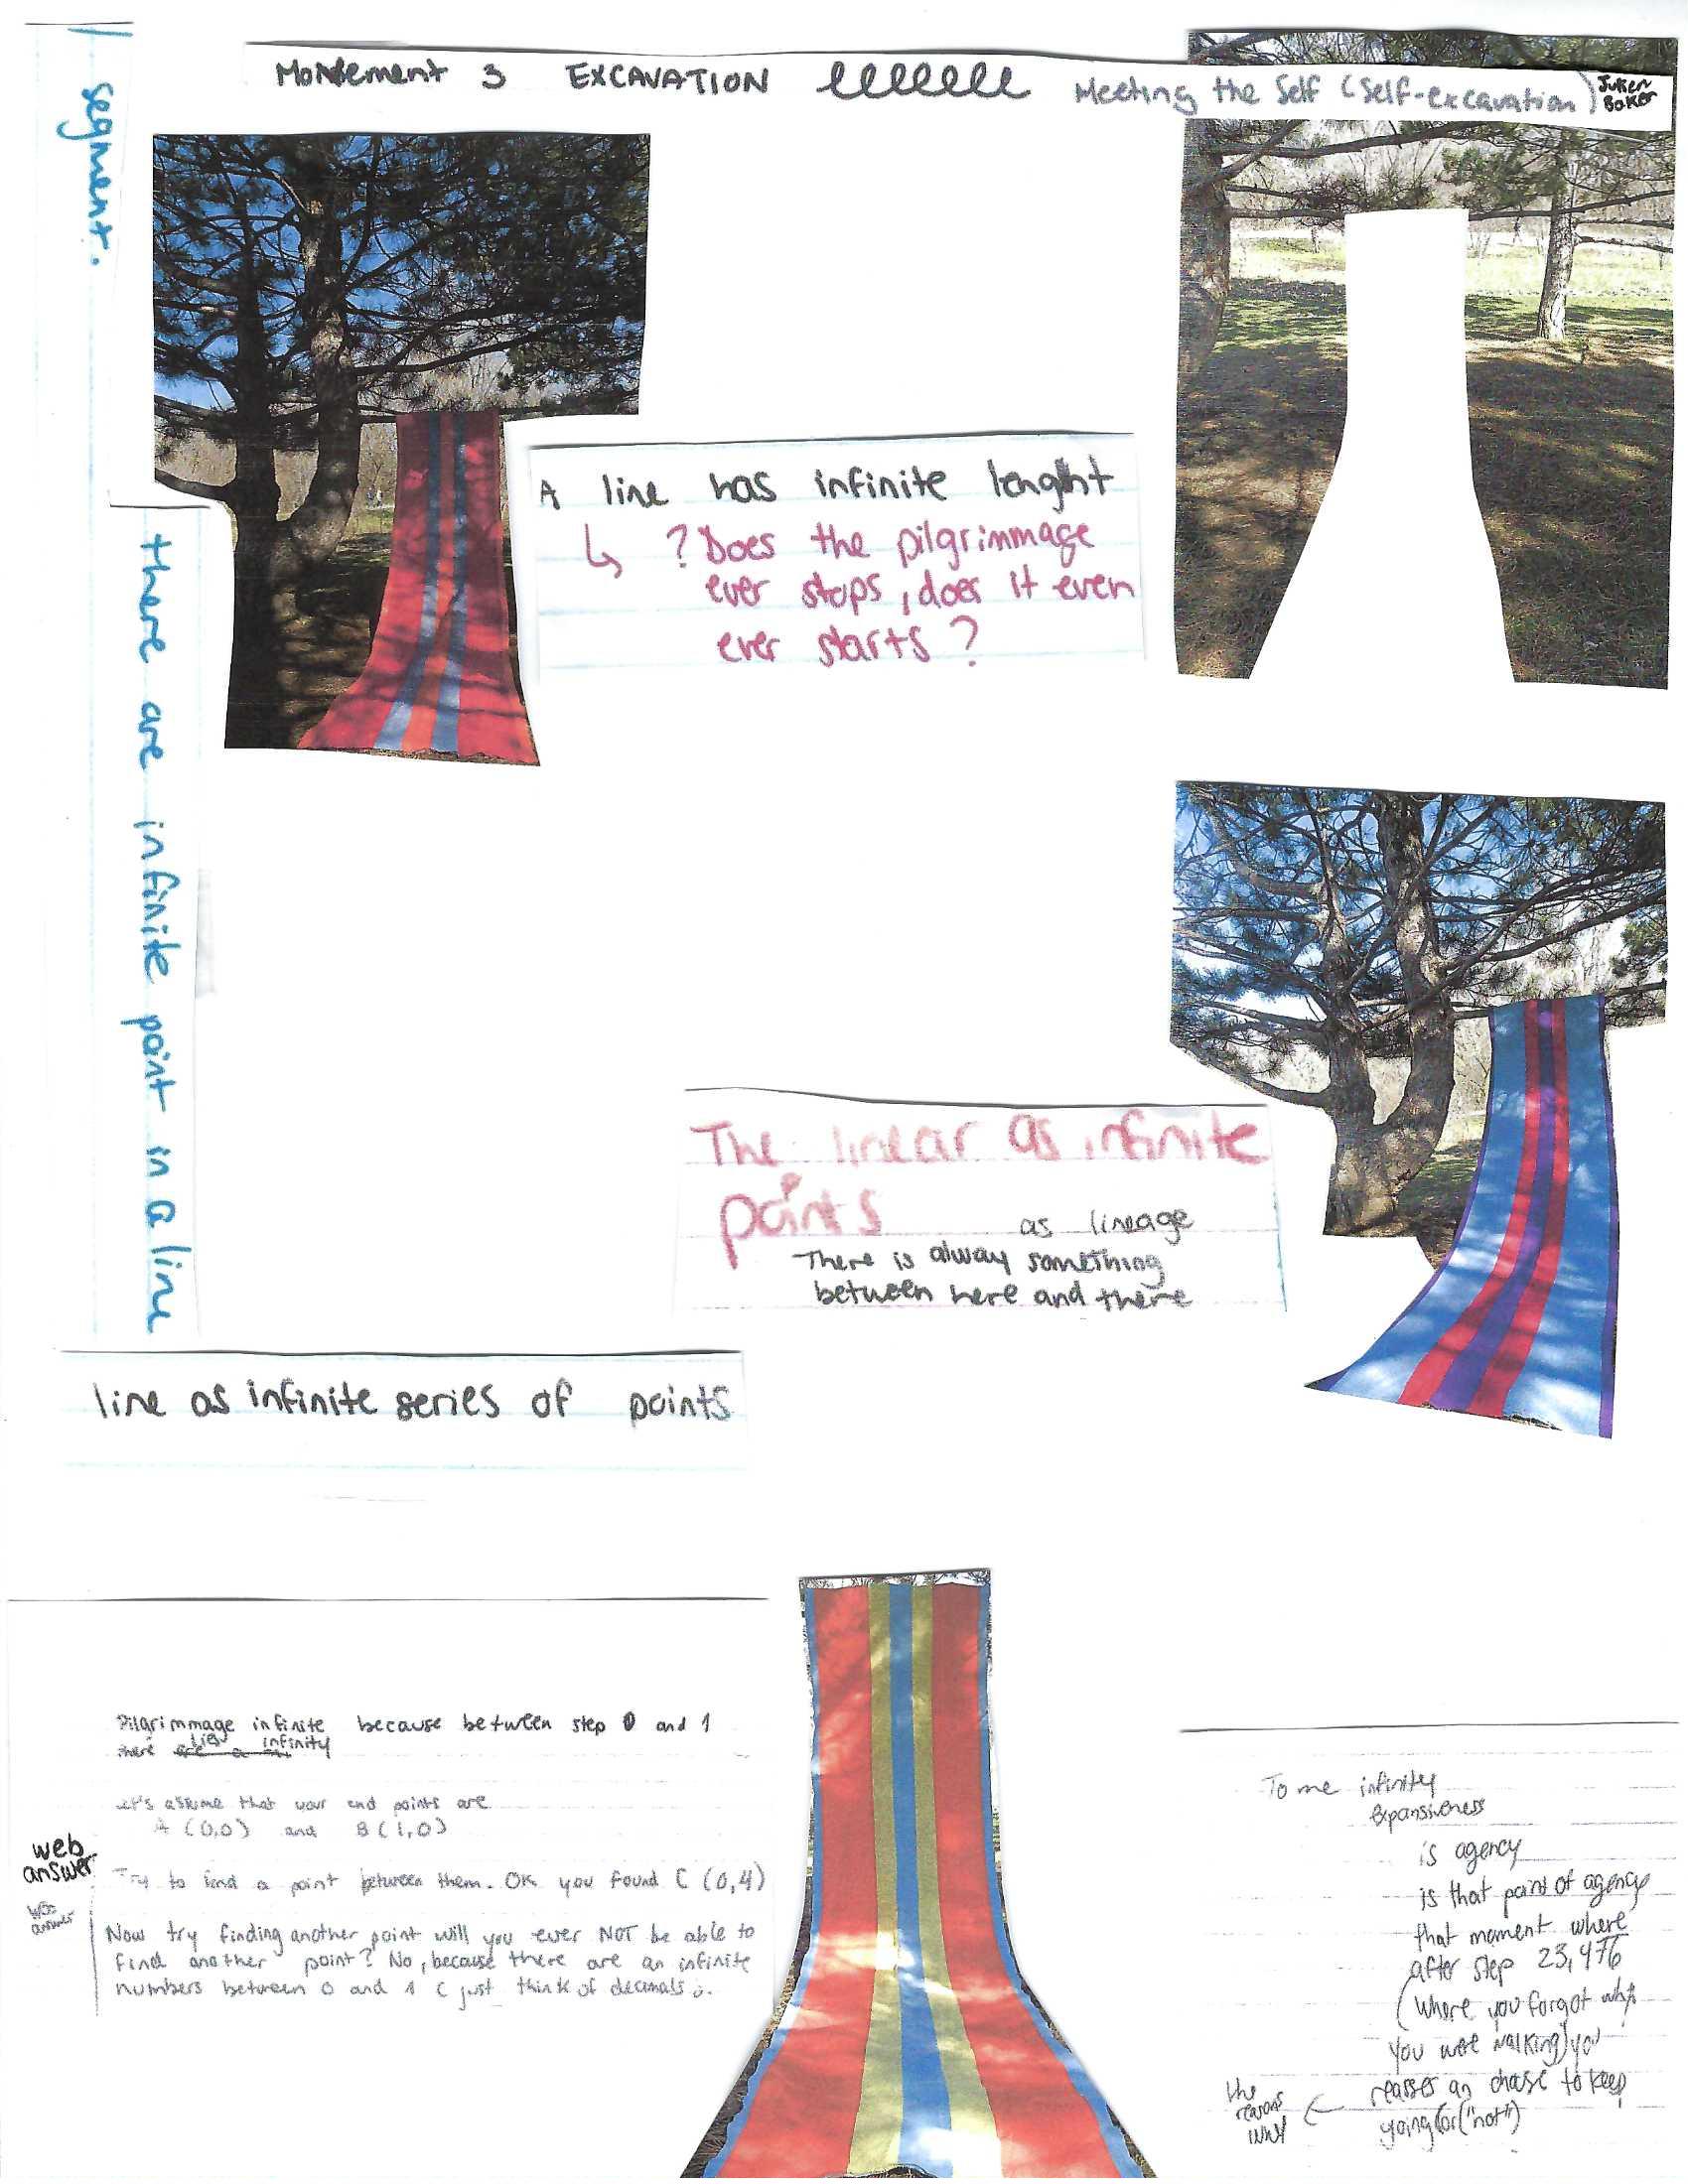 EXCAVATION
Meeting the Self (Self-excavation)
Julien
Baker
segment.
there are infinite point in a line
A line has infinite lenght
? Does the pilgrimmage
ever stops, does it even
ever starts?
The linear as infinite
points as lineage
There is alway something
between here and there
line as infinite series of points
Pilgrimmage infinite because between step 0 and 1
there lies infinity
Let's assume that your end points are
A (0,0) and B (1,0)
web
answer
web
answer
Try to find a point between them. OK you found C (0,4)
Now try finding another point will you ever NOT be able to
find another point? No, because there are an infinite
numbers between 0 and 1 (just think of decimals).
To me infinity
Expansiveness
is agency
is that point of agency
that moment where
after step 23,476
(where you forgot why
you were walking) you
reasses an chose to keep
going (or ("not")
the
reasons
why